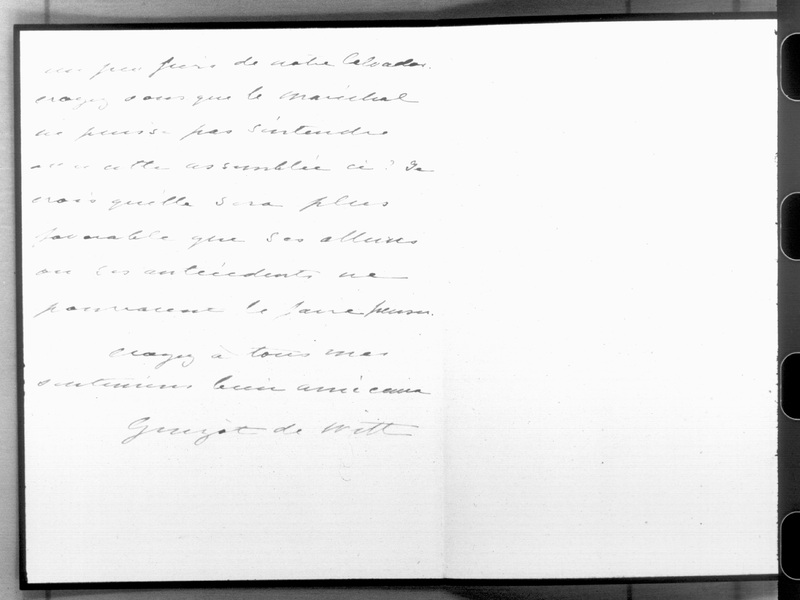 un peu fiers de notre Calvados.
croyez vous que le maréchal
ne puisse pas s'entendre
avec cette assemblée ci? Je
crois qu'elle sera plus
favorable que ses allures
ou ses antécédents ne
pourraient le faire penser.
croyez à tous mes
sentimens bien américains
Guizot de Witt